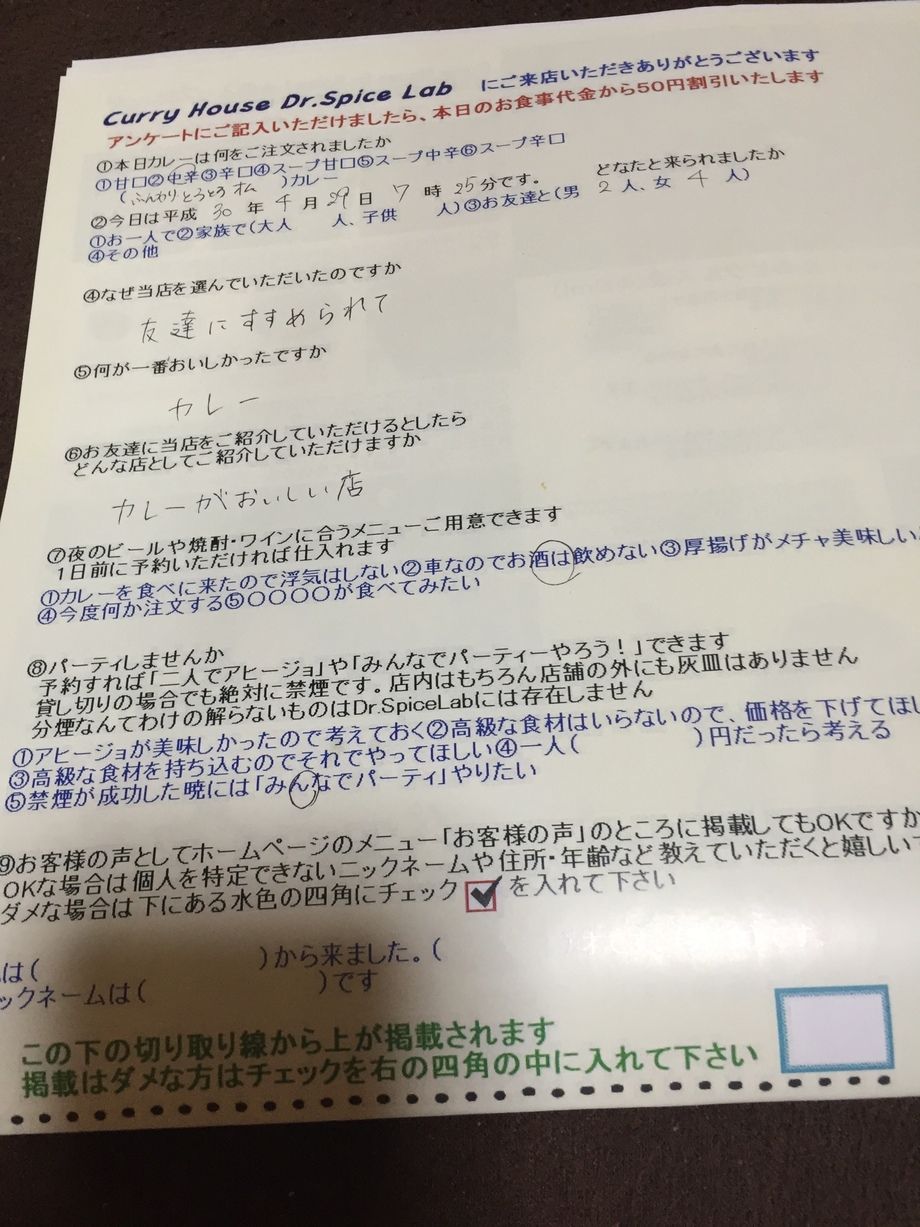 Curry House Dr.Spice Lab にご来店いただきありがとうございます
アンケートにご記入いただけましたら、本日のお食事代金から50円割引いたします
①本日カレーは何をご注文されましたか
①甘口②中辛③辛口④スープ甘口⑤スープ中辛⑥スープ辛口
(ふんわりとろとろオム )カレー どなたと来られましたか
②今日は平成 30 年 4 月 29 日 7 時 25 分です。
①お一人で②家族で(大人 人、子供 人)③お友達と(男 2 人、女 4 人)
④その他
④なぜ当店を選んでいただいたのですか
友達にすすめられて
⑤何が一番おいしかったですか
カレー
⑥お友達に当店をご紹介していただけるとしたら
どんな店としてご紹介していただけますか
カレーがおいしい店
⑦夜のビールや焼酎・ワインに合うメニューご用意できます
1日前に予約いただければ仕入れます
①カレーを食べに来たので浮気はしない②車なのでお酒は飲めない③厚揚げがメチャ美味しい
④今度何か注文する⑤〇〇〇〇が食べてみたい
⑧パーティしませんか
予約すれば「二人でアヒージョ」や「みんなでパーティーやろう!」できます
貸し切りの場合でも絶対に禁煙です。店内はもちろん店舗の外にも灰皿はありません
分煙なんてわけの解らないものはDr.SpiceLabには存在しません
①アヒージョが美味しかったので考えておく②高級な食材はいらないので、価格を下げてほし
③高級な食材を持ち込むのでそれでやってほしい④一人( )円だったら考える
⑤禁煙が成功した暁には「みんなでパーティ」やりたい
⑨お客様の声としてホームページのメニュー「お客様の声」のところに掲載してもOKですか
OKな場合は個人を特定できないニックネームや住所・年齢など教えていただくと嬉しいで
ダメな場合は下にある水色の四角にチェック を入れて下さい
は( )から来ました。(
ックネームは( )です
この下の切り取り線から上が掲載されます
掲載はダメな方はチェックを右の四角の中に入れて下さい